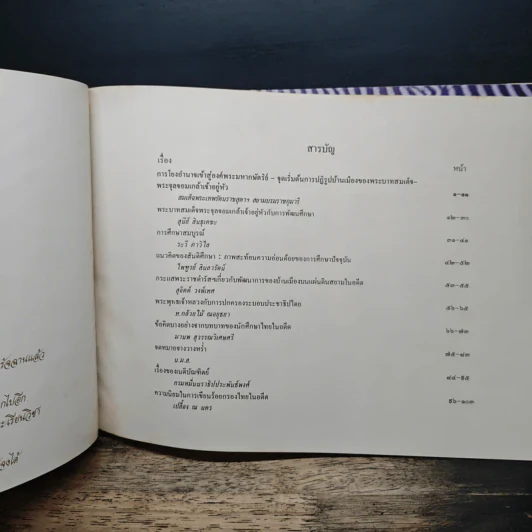 รัจฉานแล้ว
สารบัญ
เรื่อง
หน้า
การโยงอำนาจเข้าสู่องค์พระมหากษัตริย์ – จุดเริ่มต้นการปฏิรูปบ้านเมืองของพระบาทสมเด็จ–
พระจุลจอมเกล้าเจ้าอยู่หัว
๑–๑๑
สมเด็จพระเทพรัตนราชสุดาฯ สยามบรมราชกุมารี
พระบาทสมเด็จพระจุลจอมเกล้าเจ้าอยู่หัวกับการพัฒนศึกษา
๑๒–๓๑
สุนีย์ สินธุเดชะ
การศึกษาสมบูรณ์
๓๑–๔๑
ระวี ภาวิไล
แนวคิดของสันติศึกษา : ภาพสะท้อนความก่อนด้อยของการศึกษาปัจจุบัน
๔๒–๕๒
ไพฑูรย์ สินลารัตน์
กระแสพระราชดำรัสฯเกี่ยวกับพัฒนาการของบ้านเมืองบนแผ่นดินสยามในอดีต
๕๓–๕๕
สุจิตต์ วงษ์เทศ
พระพุทธเจ้าหลวงกับการปกครองระบอบประชาธิปไตย
๕๖–๖๕
ท.กล้วยไม้ ณอยุธยา
ข้อคิดบางอย่างจากบทบาทของนักศึกษาไทยในอดีต
๖๖–๗๓
มานพ สุวรรณวิเศษศรี
จดหมายจางวางหร่ำ
๗๕–๘๓
น.ม.ส.
เรื่องของเนติบัณฑิตย์
๘๔–๙๕
กรมหมื่นนราธิปประพันธ์พงศ์
ความนิยมในการเขียนร้อยกรองไทยในอดีต
๙๖–๑๐๓
เปลื้อง ณ นคร